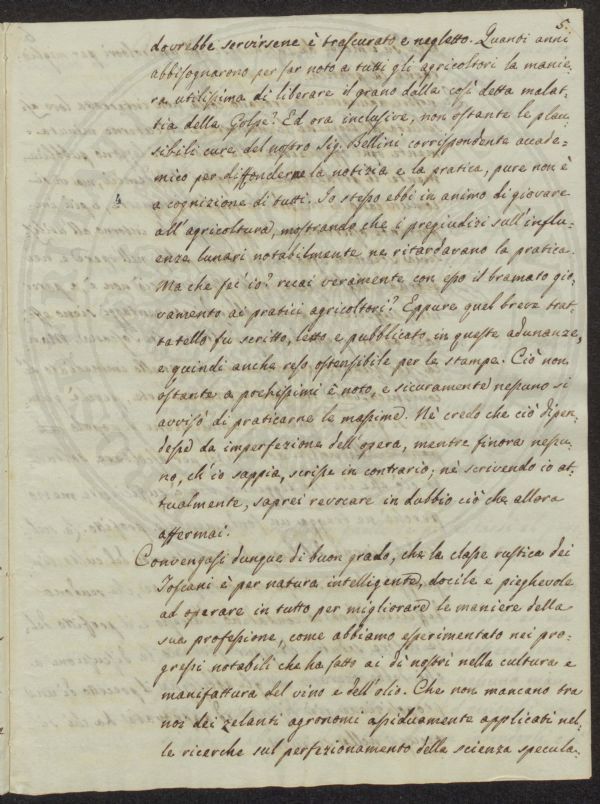 5.
dovrebbe servirsene è trascurato e negletto. Quandi anni
abbisognarono per far noto a tutti gli agricoltori la manie:
ra utilissima di liberare il grano dalla così detta malat:
tia della Golpe? Ed ora inclusive, non ostante le plau:
sibili cure del nostro Sig. Bellini corrispondente accade:
mico per diffonderne la notizia e la pratica, pure non è
a cognizione di tutti. Io stesso ebbi in animo di giovare
all'agricoltura, mostrando che i pregiudizi sull'influ:
enze lunari notabilmente ne ritardavano la pratica.
Ma che fei io? recai veramente con esso il bramato gio:
vamento ai pratici agricoltori? Eppure quel breve trat:
tatello fu scritto, letto e pubblicato in queste adunanze,
e quindi anche reso ostensibile per le stampe. Ciò non
ostante a pochissimi è noto, e sicuramente nessuno si
avvisò di praticarne le massime. Nè credo che ciò dipen:
desse da imperfezione dell'opera, mentre finora nessu:
no, ch'io sappia, scrisse in contrario; nè scrivendo io at:
tualmente, saprei revocare in dubbio ciò che allora
affermai.
Convengasi dunque di buon grado, che la classe rustica dei
Toscani è per natura intelligente, docile e pieghevole
ad operare in tutto per migliorare le maniere della
sua professione, come abbiamo esperimentato nei pro:
gressi notabili che ha fatto ai dì nostri nella cultura e
manifattura del vino e dell'olio. Che non mancano tra
noi dei zelanti agronomi assiduamente applicati nel:
le ricerche sul perfezionamento della scienza specula: